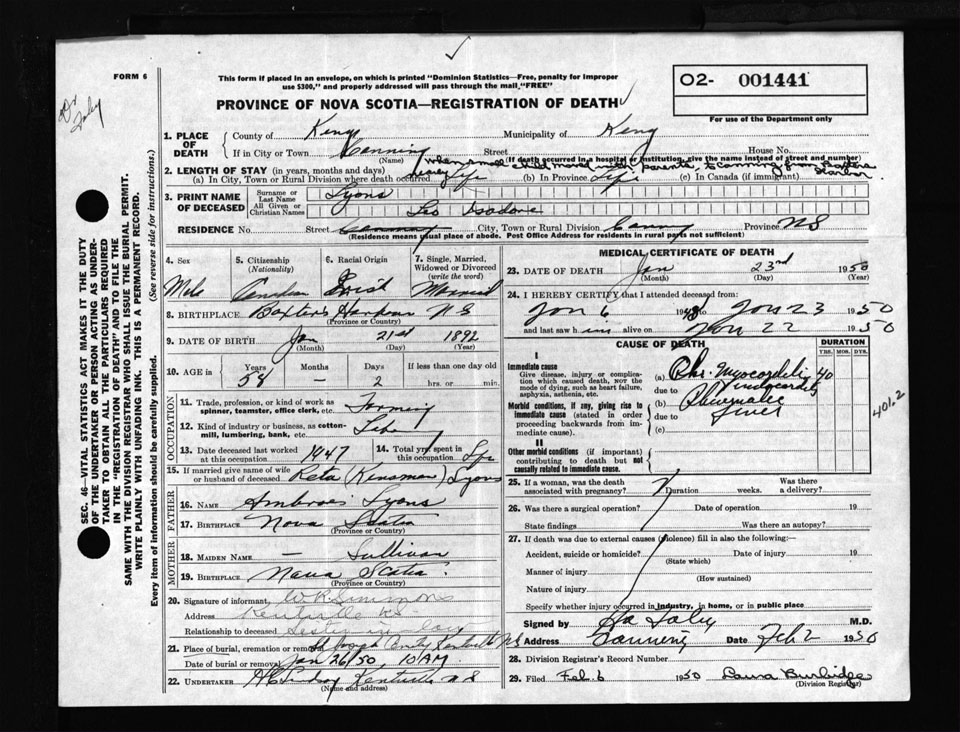 FORM 6
Dr Foley
This form if placed in an envelope, on which is printed "Dominion Statistics—Free, penalty for improper
use $300," and properly addressed will pass through the mail "FREE"
PROVINCE OF NOVA SCOTIA—REGISTRATION OF DEATH
O2- 001441
For use of the Department only
SEC. 46—VITAL STATISTICS ACT MAKES IT THE DUTY
OF THE UNDERTAKER OR PERSON ACTING AS UNDER-
TAKER TO OBTAIN ALL THE PARTICULARS REQUIRED
IN THE "REGISTRATION OF DEATH" AND TO FILE THE
SAME WITH THE DIVISION REGISTRAR WHO SHALL ISSUE THE BURIAL PERMIT.
WRITE PLAINLY WITH UNFADING INK. THIS IS A PERMANENT RECORD.
Every item of information should be carefully supplied. (See reverse side for instructions.)
1. PLACE OF DEATH County of Kings Municipality of Kings
If in City or Town Canning Street House No.
(Name) (If death occurred in a hospital or institution, give the name instead of street and number)
when small child moved with parents to Canning from Baxters Harbor
2. LENGTH OF STAY (in years, months and days)
(a) In City, Town or Rural Division where death occurred nearly Life (b) In Province Life (c) In Canada (if immigrant)
3. PRINT NAME OF DECEASED Surname or Last Name Lyons
All Given or Christian Names Leo Isadore
RESIDENCE No. Street Canning City, Town or Rural Division Canning Province NS
(Residence means usual place of abode. Post Office Address for residents in rural parts not sufficient)
4. Sex Male
5. Citizenship (Nationality) Canadian
6. Racial Origin Irish
7. Single, Married, Widowed or Divorced (write the word) Married
8. BIRTHPLACE Baxters Harbour N S
(Province or Country)
9. DATE OF BIRTH Jan 21st 1892
(Month) (Day) (Year)
10. AGE in Years Months Days If less than one day
58 — 2 hrs. or min.
OCCUPATION
11. Trade, profession or kind of work as spinner, teamster, office clerk, etc. Farming
12. Kind of industry or business, as cotton-mill, lumbering, bank, etc.
13. Date deceased last worked at this occupation 1947
14. Total yrs. spent in this occupation Life
15. If married give name of wife or husband of deceased Reta (Kinsman) Lyons
FATHER
16. NAME Ambrose Lyons
17. BIRTHPLACE Nova Scotia
(Province or Country)
MOTHER
18. MAIDEN NAME — Sullivan
19. BIRTHPLACE Nova Scotia
(Province or Country)
20. Signature of informant W R Simmons
Address Kentville NS
Relationship to deceased in law
21. Place of burial, cremation or removal St Joseph Kentville NS
Date of burial or removal Jan 26/50, 10 AM
22. UNDERTAKER Kentville N S
(Name and address)
MEDICAL CERTIFICATE OF DEATH
23. DATE OF DEATH Jan 23rd 1950
(Month) (Day) (Year)
24. I HEREBY CERTIFY that I attended deceased from
Jan 6 to Jan 23 1950
and last saw him alive on Jan 22 1950
CAUSE OF DEATH
DURATION
YRS. MOS. DYS.
I
Immediate cause
Give disease, injury or complication which caused death, not the mode of dying, such as heart failure, asphyxia, asthenia, etc.
(a) Chr. Myocarditis 40
due to Endocarditis
Morbid conditions, if any, giving rise to immediate cause (stated in order proceeding backwards from immediate cause).
(b) Rheumatic
due to Fever
(c)
401.2
II
Other morbid conditions (if important) contributing to death but not causally related to immediate cause.
25. If a woman, was the death associated with pregnancy? Duration weeks. Was there a delivery?
26. Was there a surgical operation? Date of operation 19
State findings Was there an autopsy?
27. If death was due to external causes (violence) fill in also the following:-
Accident, suicide or homicide? Date of injury 19
(State which)
Manner of injury
(How sustained)
Nature of injury
Specify whether injury occurred in industry, in home, or in public place
Signed by Foley M.D.
Address Canning Date Feb 2 1950
28. Division Registrar's Record Number
29. Filed Feb. 6 1950 Laura Burbidge
(Division Registrar)